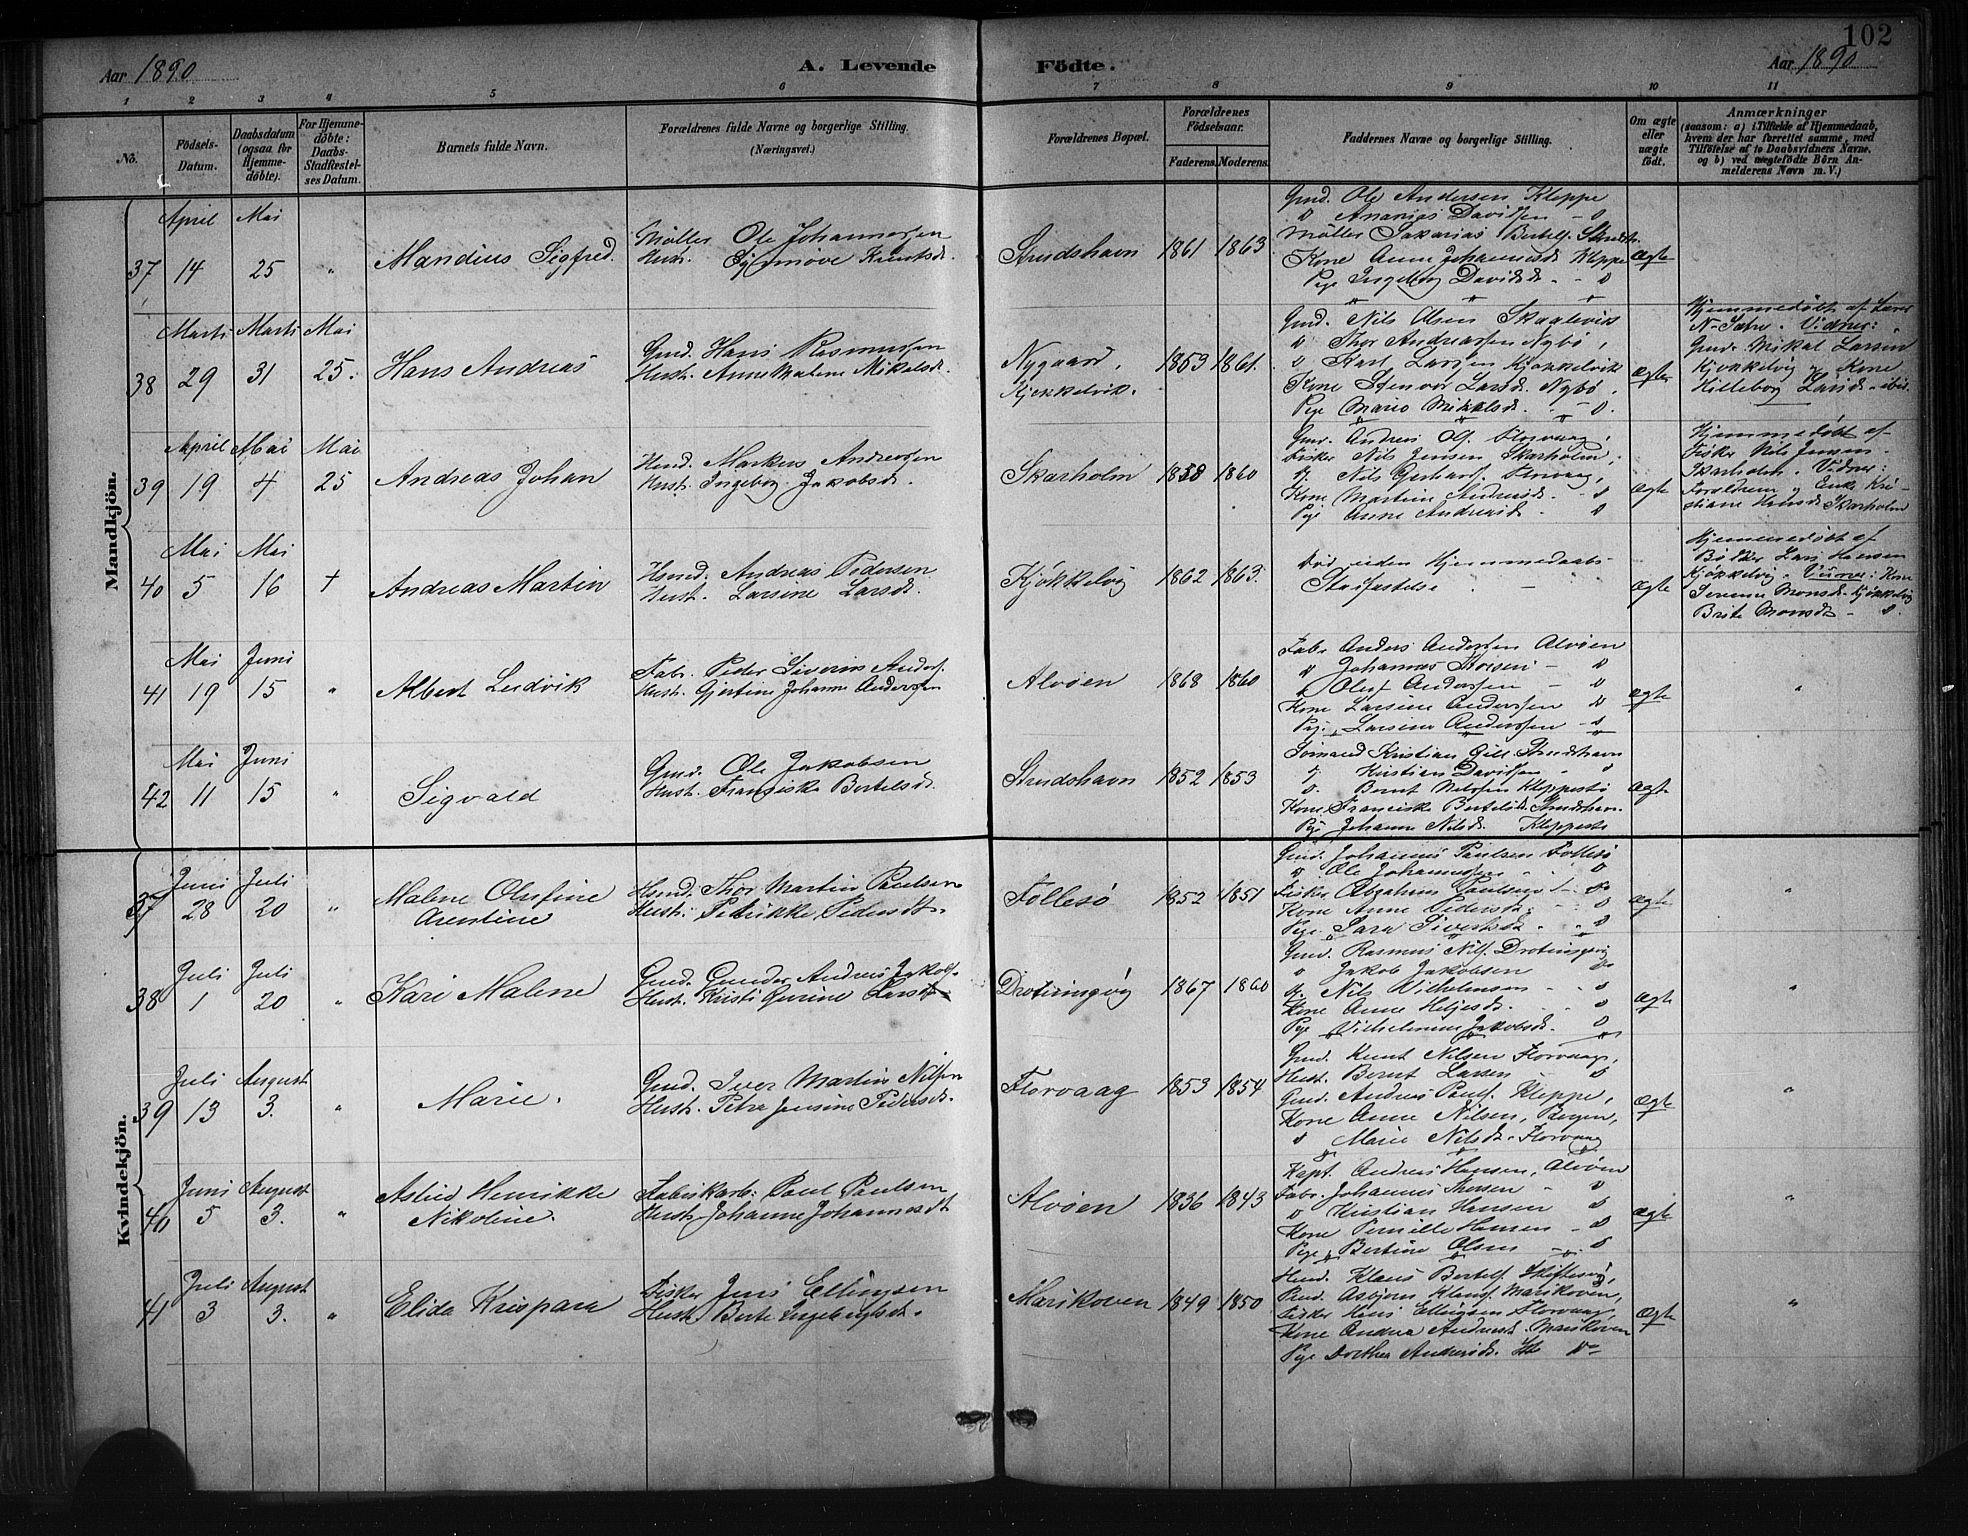 102
Aar 1890
A. Levende Födte.
Aar 1890
1 2 3 4 5 6 7 8 9 10 11
No.
Födsels-
Datum.
Daabsdatum
(ogsaa for
Hjemme-
döbte).
For Hjemme-
döbte:
Daabs-
Stadfæstel-
ses Datum.
Barnets fulde Navn.
Forældrenes fulde Navne og borgerlige Stilling.
(Næringsvei.)
Forældrenes Bopæl.
Forældrenes
Födselsaar.
Faderens. Moderens.
Faddernes Navne og borgerlige Stilling.
Om ægte
eller
uægte
födt.
Anmærkninger
(saasom: a) i Tilfælde af Hjemmedaab,
hvem der har forrettet samme, med
Tilföielse af to Daabsvidners Navne,
og b) ved uægtefödte Börn An-
melderens Navn m. V.)
Mandkjön.
April Mai
37 14 25 "
Mandius Sigfred
Möller Ole Johannessen
Hust. Synnöve Knutsd.
Strudshavn 1861 1863
Gmd. Ole Andersen Kleppe
" Ananias Davidsen - "
Möller Sakarias Bertels.
Kone Anne Johannesd. Kleppe
Pige Ingeborg Davidsd. - "
Ægte
Marts Marts Mai
38 29 31 25.
Hans Andreas
Gmd. Hans Rasmussen
Hust. Anne Malene Mikelsd.
Nygaard,
Kjökkelvik.
1853 1861.
Gmd. Nils Olsen Skaalevik
" Thor Andreassen Nybö,
" Karl Larsen Kjökkelvik
Kone Stenvor Larsd. Nybö,
Pige Marie Mikkelsd. - ".
Ægte
Hjemmedöbt af Lærer
N. Sætre. Vidner:
Gmd. Mikal Larsen
Kjökkelvig og Kone
Killeborg Larsd. ibid.
April Mai Mai
39 19 4 25
Andreas Johan
Hmd. Markus Andersen
Hust. Ingeborg Jakobsd.
Skarholm 1858 1860
Gmd. Andreas Ols. Florvaag,
Fisker Nils Jensen Skarholm,
". Nils Gerhards. Florvaag,
Kone Martine Andreasd. - "
Pige Anne Andreasd. - "
Ægte
Hjemmedöbt af
Fisker Nils Jensen
Skarholm. Vidner:
Forældrene og Enke Kri-
stiane Knudsd. Skarholm
Mai Mai
40 5 16 †
Andreas Martin
Hsmd. Andreas Pedersen
Hust. Larsine Larsd.
Kjökkelvig 1862 1863.
Död uden Hjemmedaabs-
Stadfæstelse
Ægte
Hjemmedöbt af
Bödker Lars Hansen
Kjökkelvig. Vidner: Kone
Serenne Monsd. Kjökkelvig
Brite Monsd. - ".
Mai Juni
41 19 15 "
Albert Ludvik
Fabr. Peder Severin Anders.
Hust. Gjertine Johanne Andersen
Alvöen 1868 1860
Fabr. Anders Andersen Alvöen
" Johannes Thorsen - "
" Oluf Anderssen - "
Kone Larsine Anderssen "
Pige Larsine Anderssen - "
Ægte
"
Mai Juni
42 11 15 "
Sigvald
Gmd. Ole Jakobsen
Hust. Franciske Bertelsd.
Strudshavn 1852 1853
Sömand Kristian Strudshavn
". Kristian Davidsen "
". Bernt Nilssen Kleppestö
Kone Franciske Bertelsd. Strudshavn.
Pige Johanne Nilsd. Kleppestö
Ægte
"
Kvindekjön.
Juni Juli
37 28 20 "
Malene Olufine
Arentine
Hsmd. Thor Martin Paulsen
Hust. Petrikke Pedersdt.
Follesö 1852 1851
Gmd. Johannes Paulsen Follesö
" Ole Johannessen - "
Fisker Abraham Paulsen - "
Kone Anne Pedersd. - "
Pige Sara Sivertsd. - "
Ægte
"
Juli Juli
38 1 20 "
Kari Malene
Gmd. Gunder Andreas Jakobs.
Hust. Kristi Gurine Larsdt.
Drotningvig 1867 1860
Gmd. Rasmus Nils. Drotningvig
" Jakob Jakobsen "
". Nils Vilhelmsen - "
Kone Anne Heljesd. - "
Pige Vilhelmine Jakobsd. "
Ægte
"
Juli August
39 13 3. "
Marie.
Gmd. Iver Martin Nilsen
Hust. Petra Jensine Pedersd.
Florvaag 1853 1854
Gmd. Knut Nilsen Florvaag,
Hust. Bernt Larsen "
Gmd. Andreas Pauls. Kleppe,
Kone Anne Nilsen, Bergen,
" Marie Nilsd. Florvaag
Ægte
"
Juni August
40 5 3. "
Astrid Henrikke
Nikoline.
Fabrikarb: Paul Paulsen
Hust. Johanne Johannesdt
Alvöen 1836 1843
Kapt. Andreas Hansen, Alvöen
Fabr. Johannes Thorsen - "
" Kristian Hansen "
Kone Pernille Hansen - "
Pige Bertine Olsen - "
Ægte
"
Juli August
41 3 3. "
Elida Krispara
Fisker Jens Ellingsen
Hust. Berte Ingebrigtsdt.
Marikoven 1849 1850
Hmd. Klaus Bertels. Skiftesvig,
Gmd. Asbjörn Klaus. Marikoven,
Fisker Hans Ellingsen Florvaag,
Kone Andrea Andreasd. Marikoven
Pige Dorthea Andersd. "
Ægte
"